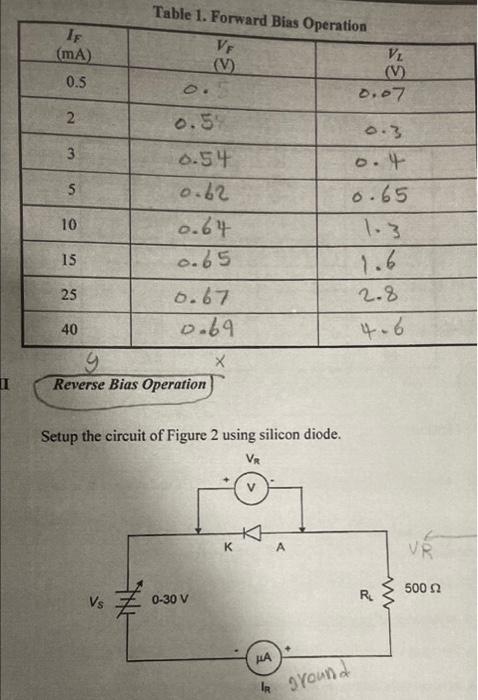 Table 1. Forward Bias Operation
IF (mA) VF (V) VL (V)
0.5 0.07
2 0.3
3 0.54 0.4
5 0.62 0.65
10 0.64 1.3
15 0.65 1.6
25 0.67 2.8
40 0.69 4.6
y x
II Reverse Bias Operation
Setup the circuit of Figure 2 using silicon diode.
VR
+ V -
K A
VR
VS 0-30 V RL 500 Ω
- μA +
IR ground